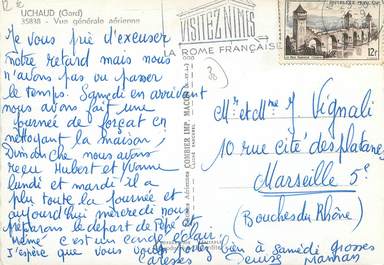 UCHAUD (Gard)
35838 - Vue générale aérienne
VISITEZ NIMES
LA ROME FRANÇAISE
12F
Je vous prie d'excuser
notre retard mais nous
n'avons pas pu passer
le temps. Samedi en arrivant
nous avons fait une
journée de forçat en
nettoyant la maison,
Dimanche nous avons
reçu Hubert et Yvonne
lundi et mardi il a
plu toute la journée et
aujourd'hui mercredi nous
préparons le départ de Pépé et
Mémé c'est un conds
J'espère que vous portez bien à samedi grosses
caresses Denise Maman
COMBIER IMP. MACON
Mr et Mme J Vignali
10 rue cité des platanes
Marseille 5e
(Bouches du Rhône)